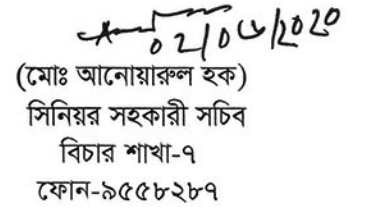 ০২/০৬/২০২০
(মোঃ আনোয়ারুল হক)
সিনিয়র সহকারী সচিব
বিচার শাখা-৭
ফোন-৯৫৫৮২৮৭